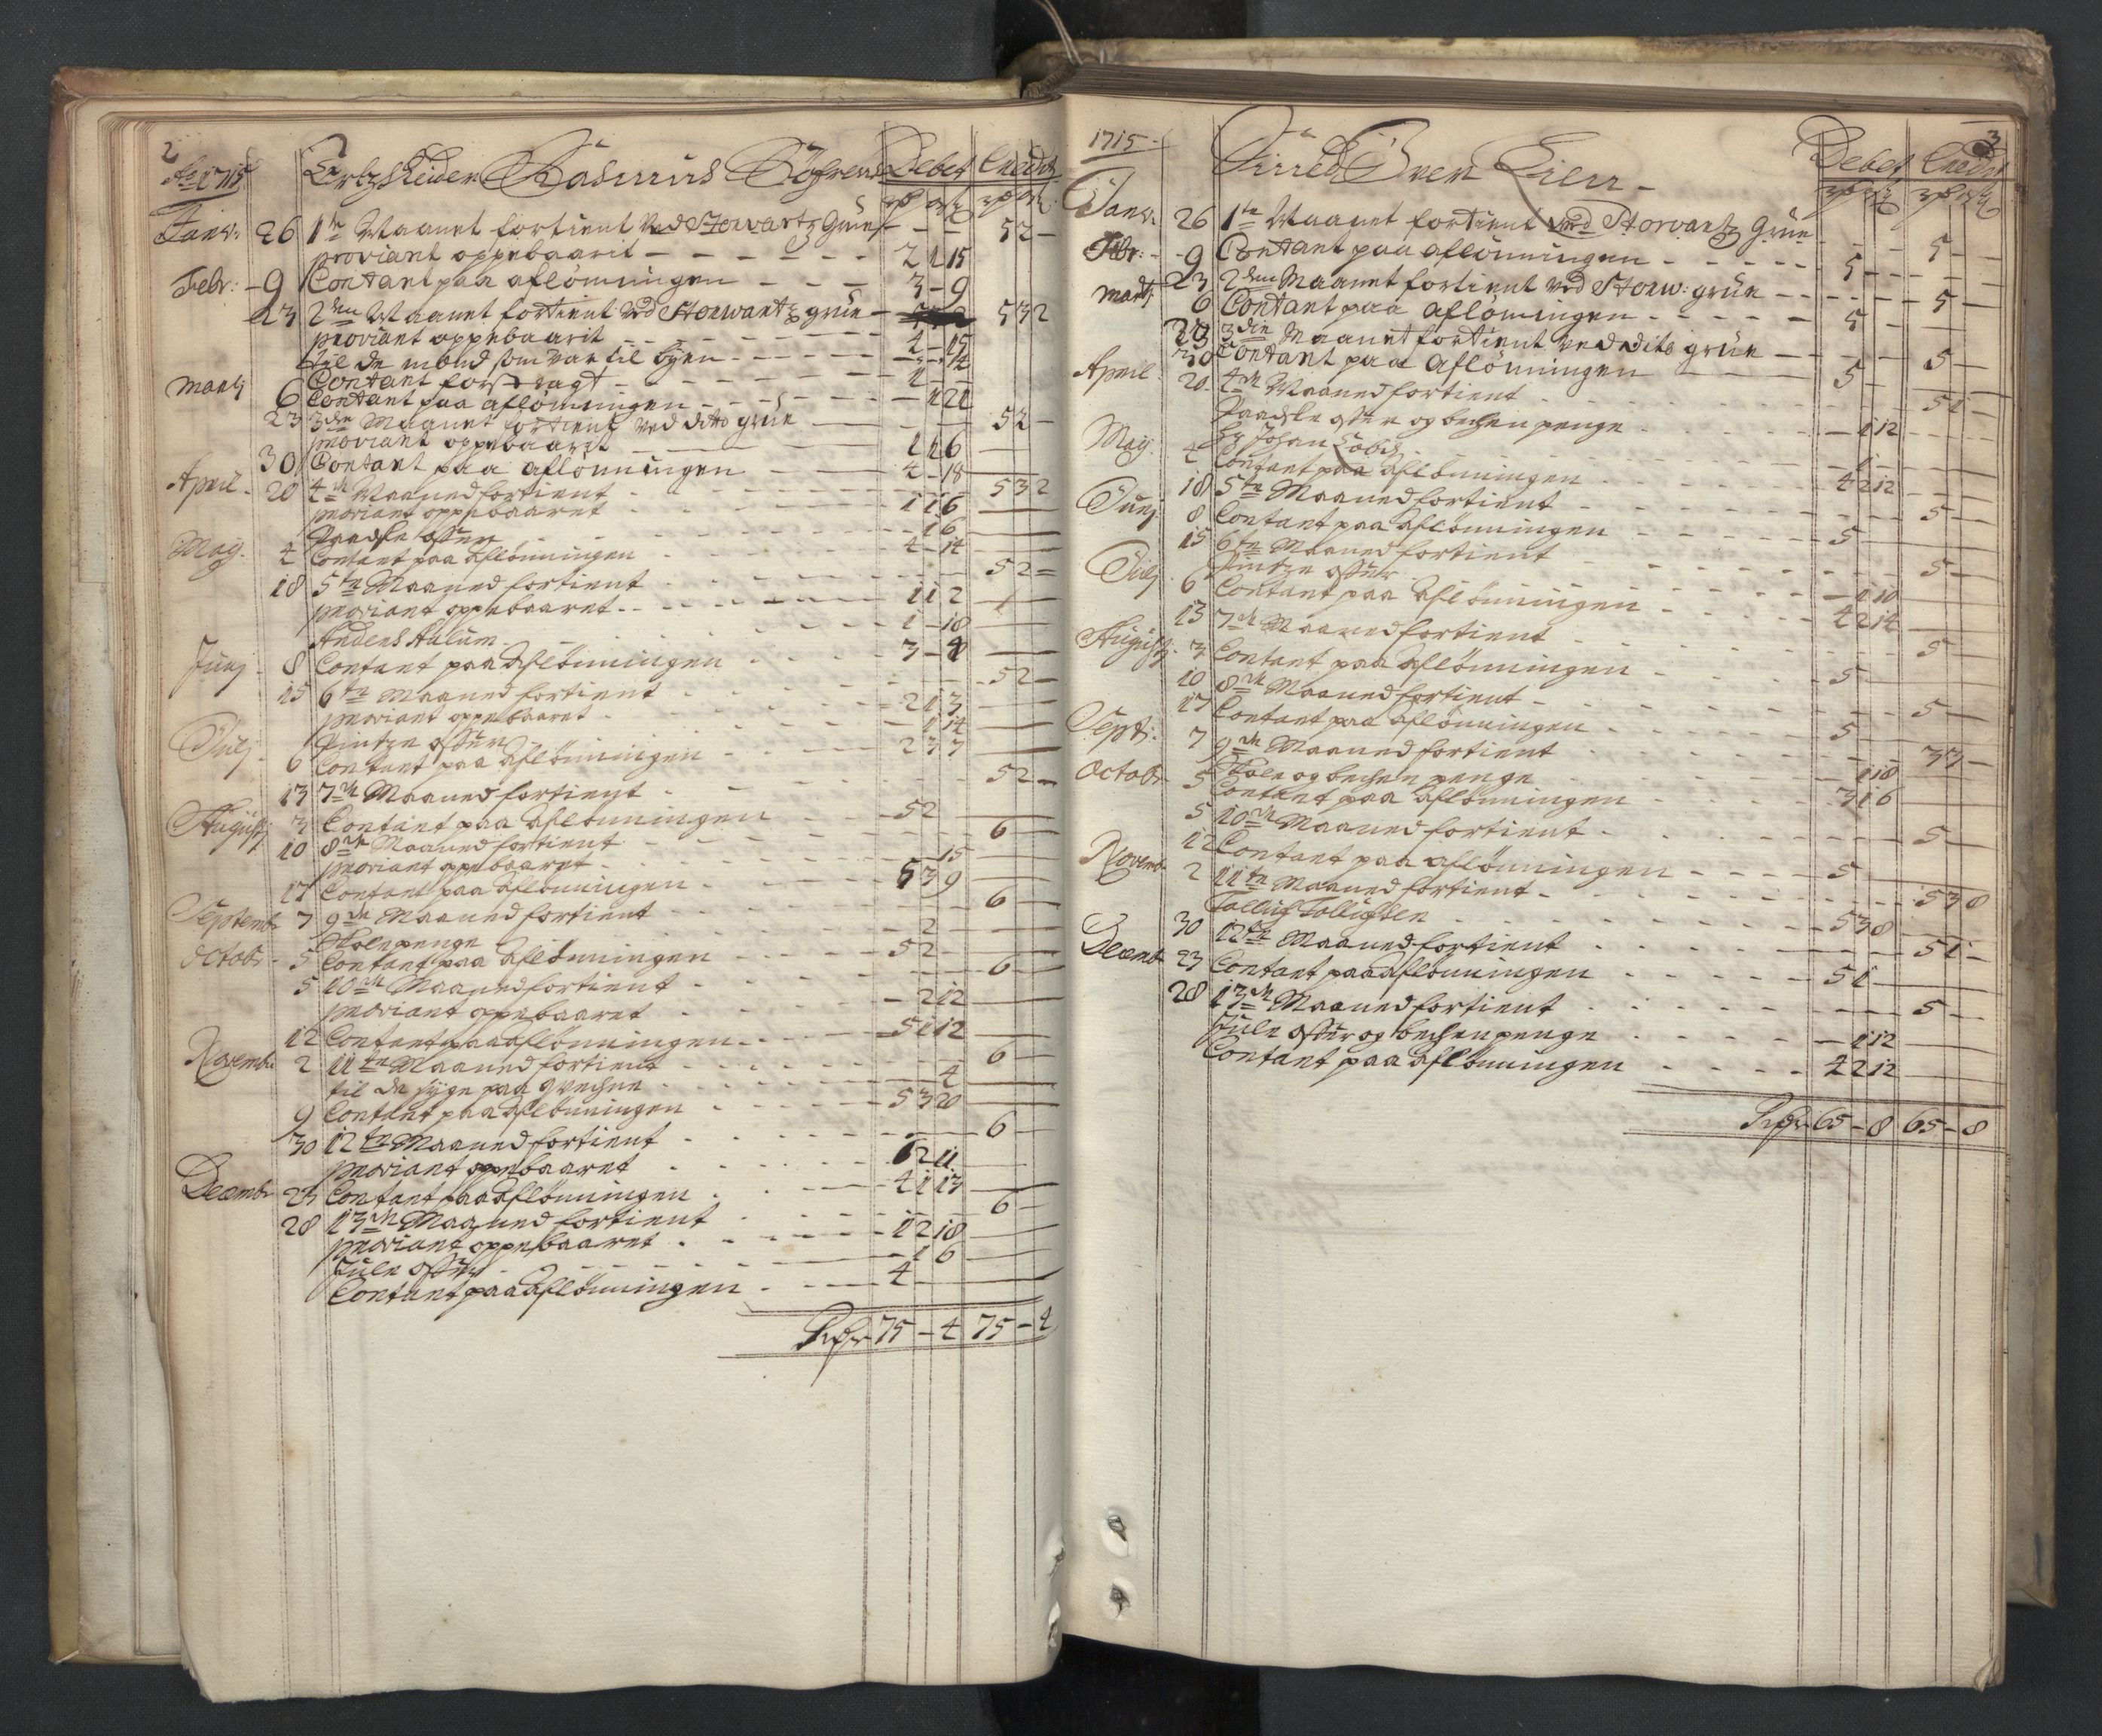 2
Ao 1715
Ertzskeider Rasmus Debet Credit
Janv: 26 1te Maanet fortient ved Storvartz Grue - - - 52 -
proviant oppebaarit - - - 2 1 15
Febr: - 9 Contant paa aflønningen - - - 3 - 9
23 2den Maanet fortient ved Storwartz grue - 532
proviant oppebaarit - - - 2 - 15
til de mend som var til byen - - - 14
Contant
Martj 6 Contant paa aflønningen - - - 1 21
23 3die Maanet fortient ved ditto grue - - - 52 -
proviant oppebaarit 1 1 6
30 Contant paa aflønningen 4 - 18
April - 20 4de Maaned fortient - - - 532
proviant oppebaaret - - - 1 1 6
Paaske offer - - - 16
Maj. 4 Contant paa aflønningen - - - 4 - 14
18 5te Maaned fortient - - - 52 -
proviant oppebaaret - - - 1 1 2
Anders Aulum - - - 1 - 18
Junj - 8 Contant paa aflønningen - - - 3 - 4
15 6te Maaned fortient - - - 52 -
proviant oppebaaret - - - 2 1 3
Pintze offer - - - 1 14
Julj - 6 Contant paa aflønningen - - - 2 3 7
13 7de Maaned fortient - - - 52 -
Augustj 3 Contant paa aflønningen - - - 52
10 8de Maaned fortient - - - 6 -
proviant oppebaaret - - - 15
17 Contant paa aflønningen - - - 5 3 9
Septemb: 7 9de Maaned fortient - - - 6 -
Skolepenge - - - 2 -
Octob: - 5 Contant paa aflønningen - - - 52
5 10de Maaned fortient - - - 6 -
proviant oppebaaret - - - 2 12
12 Contant paa aflønningen - - - 5 1 12
Novemb: 2 11te Maaned fortient - - - 6 -
til de syge paa - - - 4
9 Contant paa aflønningen - - - 5 3 20
30 12te Maaned fortient - - - 6 -
proviant oppebaaret - - - 1 2 11
Decemb: 23 Contant paa aflønningen - - - 4 1 13
28 13de Maaned fortient - - - 6 -
proviant oppebaaret - - - 1 2 18
Jule offer - - - 1 6
Contant paa aflønningen - - - 4
75 - 4 75 - 4
3
1715 -
Debet Credit
Janv: 26 1te Maanet fortient ved Storvartz Grue - - - 5 -
Febr: - 9 Contant paa aflønningen - - - 5 - -
23 2den Maanet fortient ved Storw: grue - - - 5 -
Martj 6 Contant paa aflønningen - - - 5 -
23 3die Maanet fortient ved dito grue - - - 5 -
30 Contant paa aflønningen - - - 5 -
April 20 4de Maaned fortient - - - 51 -
Paaske offer og bechen penge - - - 1 12
Hr Johan - - - 1 -
Maj. 4 Contant paa aflønningen - - - 4 2 12
18 5te Maaned fortient - - - 5 -
Junj 8 Contant paa aflønningen - - - 5
15 6te Maaned fortient - - - 5 -
Pintze offer - - - 1 10
Julj 6 Contant paa aflønningen - - - 4 2 14
13 7de Maaned fortient - - - 5 -
Augustj. 3 Contant paa aflønningen - - - 5
10 8de Maaned fortient - - - 5 -
17 Contant paa aflønningen - - - 5
Sept: 7 9de Maaned fortient - - - 33 -
Skole og bechen penge - - - 1 18
Octob: 5 Contant paa aflønningen - - - 3 1 6
5 10de Maaned fortient - - - 5 -
12 Contant paa aflønningen - - - 5
Novemb: 2 11te Maaned fortient - - - 5 3 8
Tollief Tolliefsen - - - 5 3 8
30 12te Maaned fortient - - - 51 -
Decemb: 23 Contant paa aflønningen - - - 5 1
28 13de Maaned fortient - - - 5 -
Jule offer og bechen penge - - - 1 12
Contant paa aflønningen - - - 4 2 12
65 - 8 65 - 8